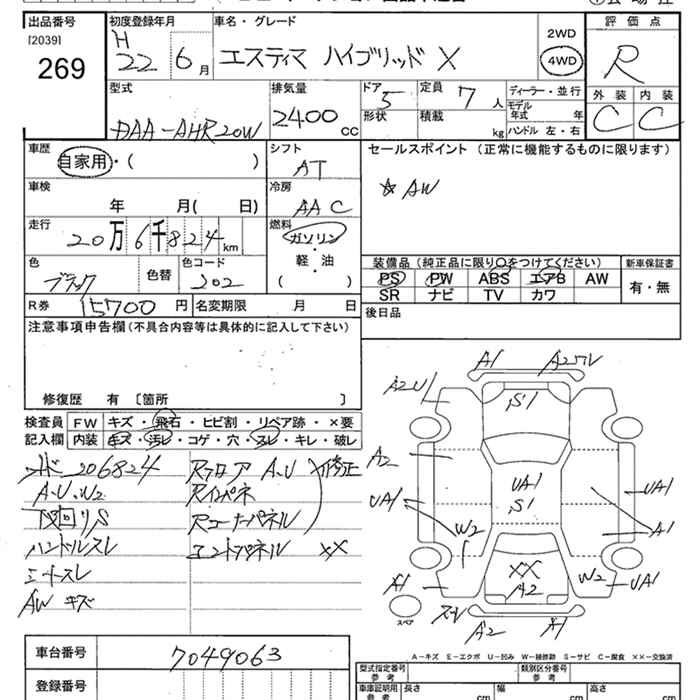 出品番号 初度登録年月 車名・グレード 評価点
[2039] 269
H 22 6月 エスティマ ハイブリッド X 2WD 4WD R
型式 DAA-AHR20W
排気量 2400 cc
ドア 5 定員 7 人 ディーラー・並行
形状 積載 kg
モデル年式 年
ハンドル 左・右
外装 内装
C C
車歴 自家用・( )
シフト AT
セールスポイント (正常に機能するものに限ります)
☆ AW
車検 年 月( 日)
冷房 AAC
走行 20万6千824km
燃料 ガソリン・軽・油 ( )
色 ブラック 色替 色コード 202
装備品 (純正品に限り○をつけてください) 新車保証書
PS PW ABS エアB AW 有・無
SR ナビ TV カワ
R券 15700 円 名変期限 月 日
後日品
注意事項申告欄(不具合内容等は具体的に記入して下さい)
修復歴 有 [箇所 ]
検査員記入欄 FW キズ・飛石・ヒビ割・リペア跡・×要
内装 キズ・汚レ・コゲ・穴・スレ・キレ・破レ
206824 Rフロア A.U 修正
A.U.W2 Rインパネ
下回りS Rコーナーパネル
ハンドルスレ エンドパネル XX
シートスレ
AW キズ
A1
A2U
S1
A2
UA1
UA1
UA1
S1
A1
W2
XX
A2
W2
UA1
A1
スペア
A2
A1
A-キズ E-エクボ U-凹み W-補修跡 S-サビ C-腐食 XX-交換済
車台番号 7049063
型式指定番号 参考 類別区分番号 参考
登録番号
車庫証明用 参考 長さ cm 幅 cm 高さ cm